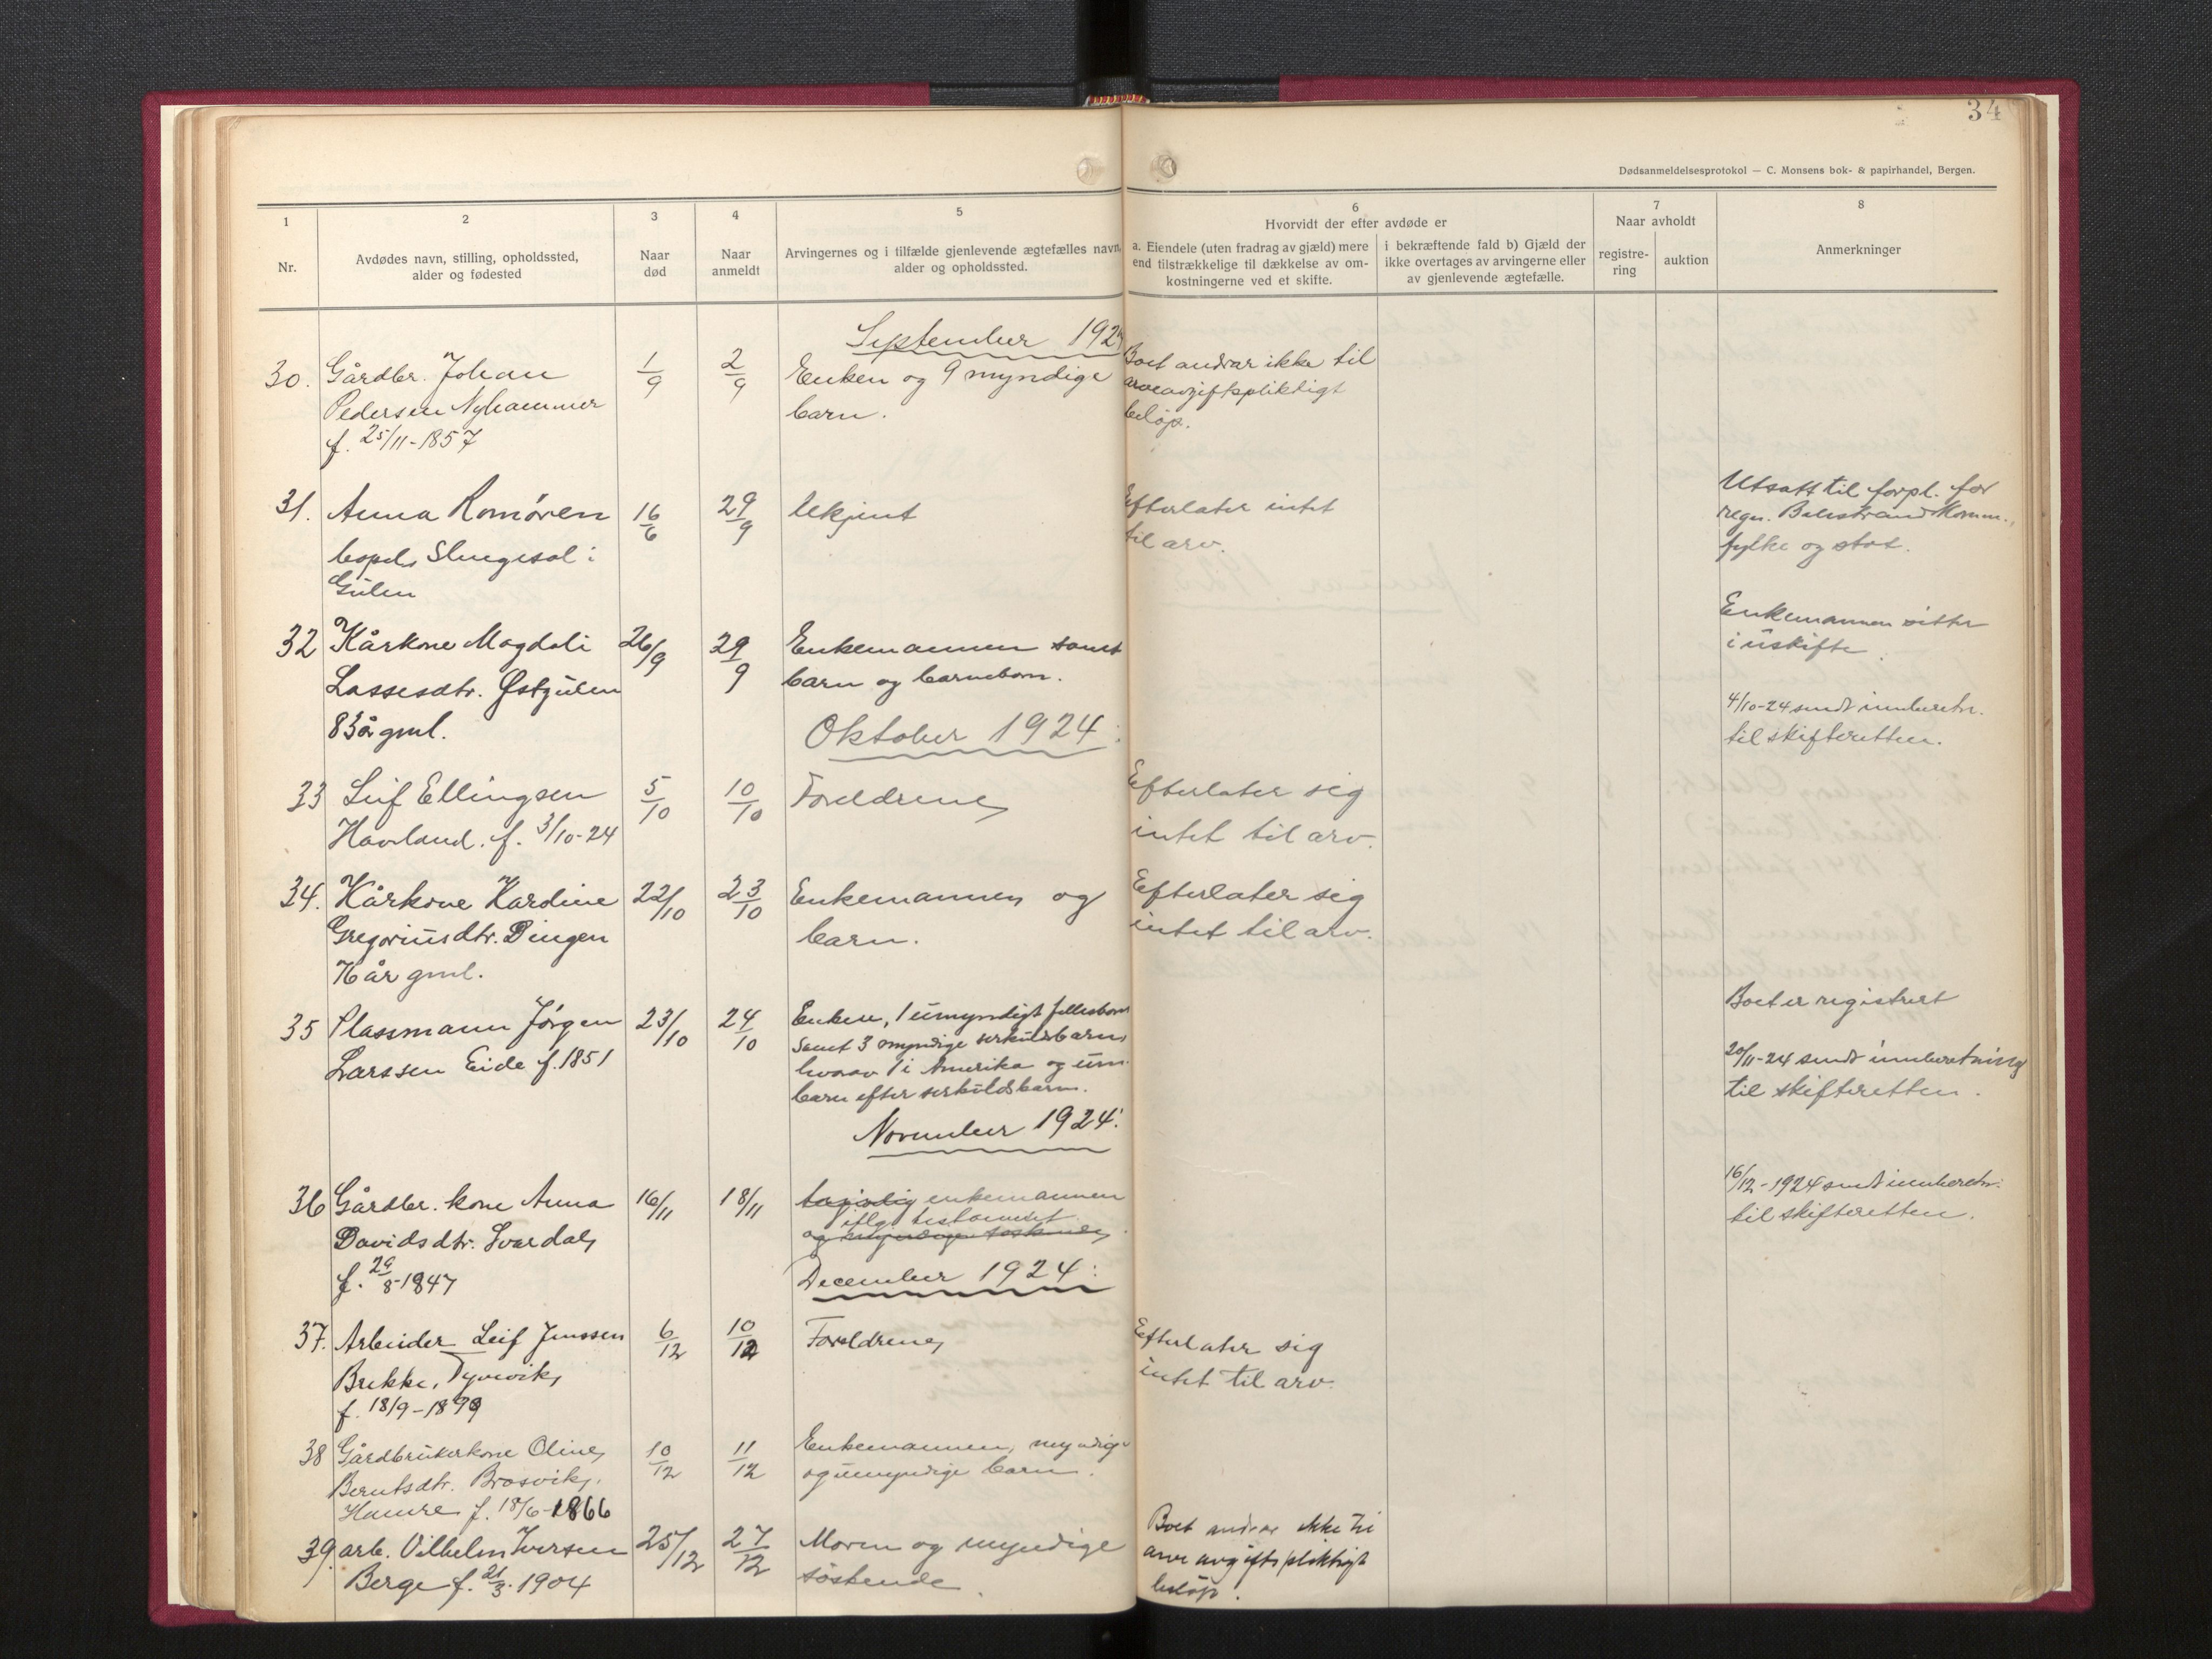 34
Dødsanmeldelsesprotokol — C. Monsens bok- & papirhandel, Bergen.
1
Nr.
2
Avdødes navn, stilling, opholdssted,
alder og fødested
3
Naar
død
4
Naar
anmeldt
5
Arvingernes og i tilfælde gjenlevende ægtefælles navn,
alder og opholdssted.
6
Hvorvidt der efter avdøde er
a. Eiendele (uten fradrag av gjæld) mere
end tilstrækkelige til dækkelse av om-
kostningerne ved et skifte.
i bekræftende fald b) Gjæld der
ikke overtages av arvingerne eller
av gjenlevende ægtefælle.
7
Naar avholdt
registre-
ring
auktion
8
Anmerkninger
September 1924
30. Gårdbr. Johan
Pedersen Nyhammer
f. 25/11-1857
1/9
2/9
Enken og 9 myndige
barn.
Boet andrar ikke til
arveavgiftspliktigt
beløp.
31. Anna Romøren
bopel Slengesol i
Gulen
16/6
29/9
Ukjent
Efterlater intet
til arv.
Utsatt til forpl. for
regn. Balestrand Komm.,
fylke og stat.
32 Kårkone Magdali
Lassesdtr. Østgulen
83 år gml.
26/9
29/9
Enkemannen samt
barn og barnebarn.
Enkemannen sitter
i uskifte.
4/10-24 sendt innberetn.
til skifteretten.
Oktober 1924:
33 Leif Ellingsen
Haveland. f. 3/10-24
5/10
10/10
Foreldrene
Efterlater sig
intet til arv.
34. Kårkone Kardine
Gregoriusdtr. Dingen
76 år gml.
22/10
23/10
Enkemannen og
barn.
Efterlater sig
intet til arv.
35 Plassmann Jørgen
Larssen Eide f. 1851
23/10
24/10
Enken, 1 umyndigt fellesbarn
samt 3 myndige serkulsbarn,
hvorav 1 i Amerika og um.
barn efter serkulsbarn.
Boet er registrert
20/11-24 sendt innberetning
til skifteretten.
November 1924:
36 Gårdbr. kone Anna
Davidsdtr. Svardal
f. 29/8-1847
16/11
18/11
enkemannen
iflg. testament
og myndige søskende.
16/12-1924 sendt innberetn.
til skifteretten.
December 1924:
37. Arbeider Leif Jenssen
Brekke, Tyvevik,
f. 18/9-1899
6/12
10/12
Foreldrene
Efterlater sig
intet til arv.
38 Gårdbrukerkone Oline
Berntsdtr. Brosvik,
Hamre f. 18/6-1866
10/12
11/12
Enkemannen, myndige
og umyndige barn.
39. arb. Vilhelm Iversen
Berge f. 21/3. 1904
25/12
27/12
Moren og myndige
søskende.
Boet andrar ikke til
arveavgiftspliktigt
beløp.